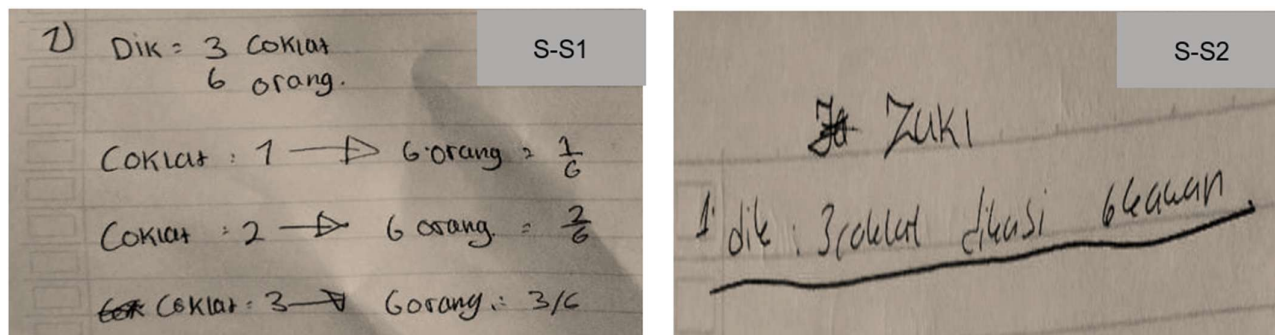 S-S1
1) Dik = 3 Coklat
6 orang.
Coklat : 1 → 6 orang = 1/6
Coklat : 2 → 6 orang. = 2/6
Coklat : 3 → 6 orang : 3/6
S-S2
ZUKI
1. dik : 3 coklat dikasi 6 kawan